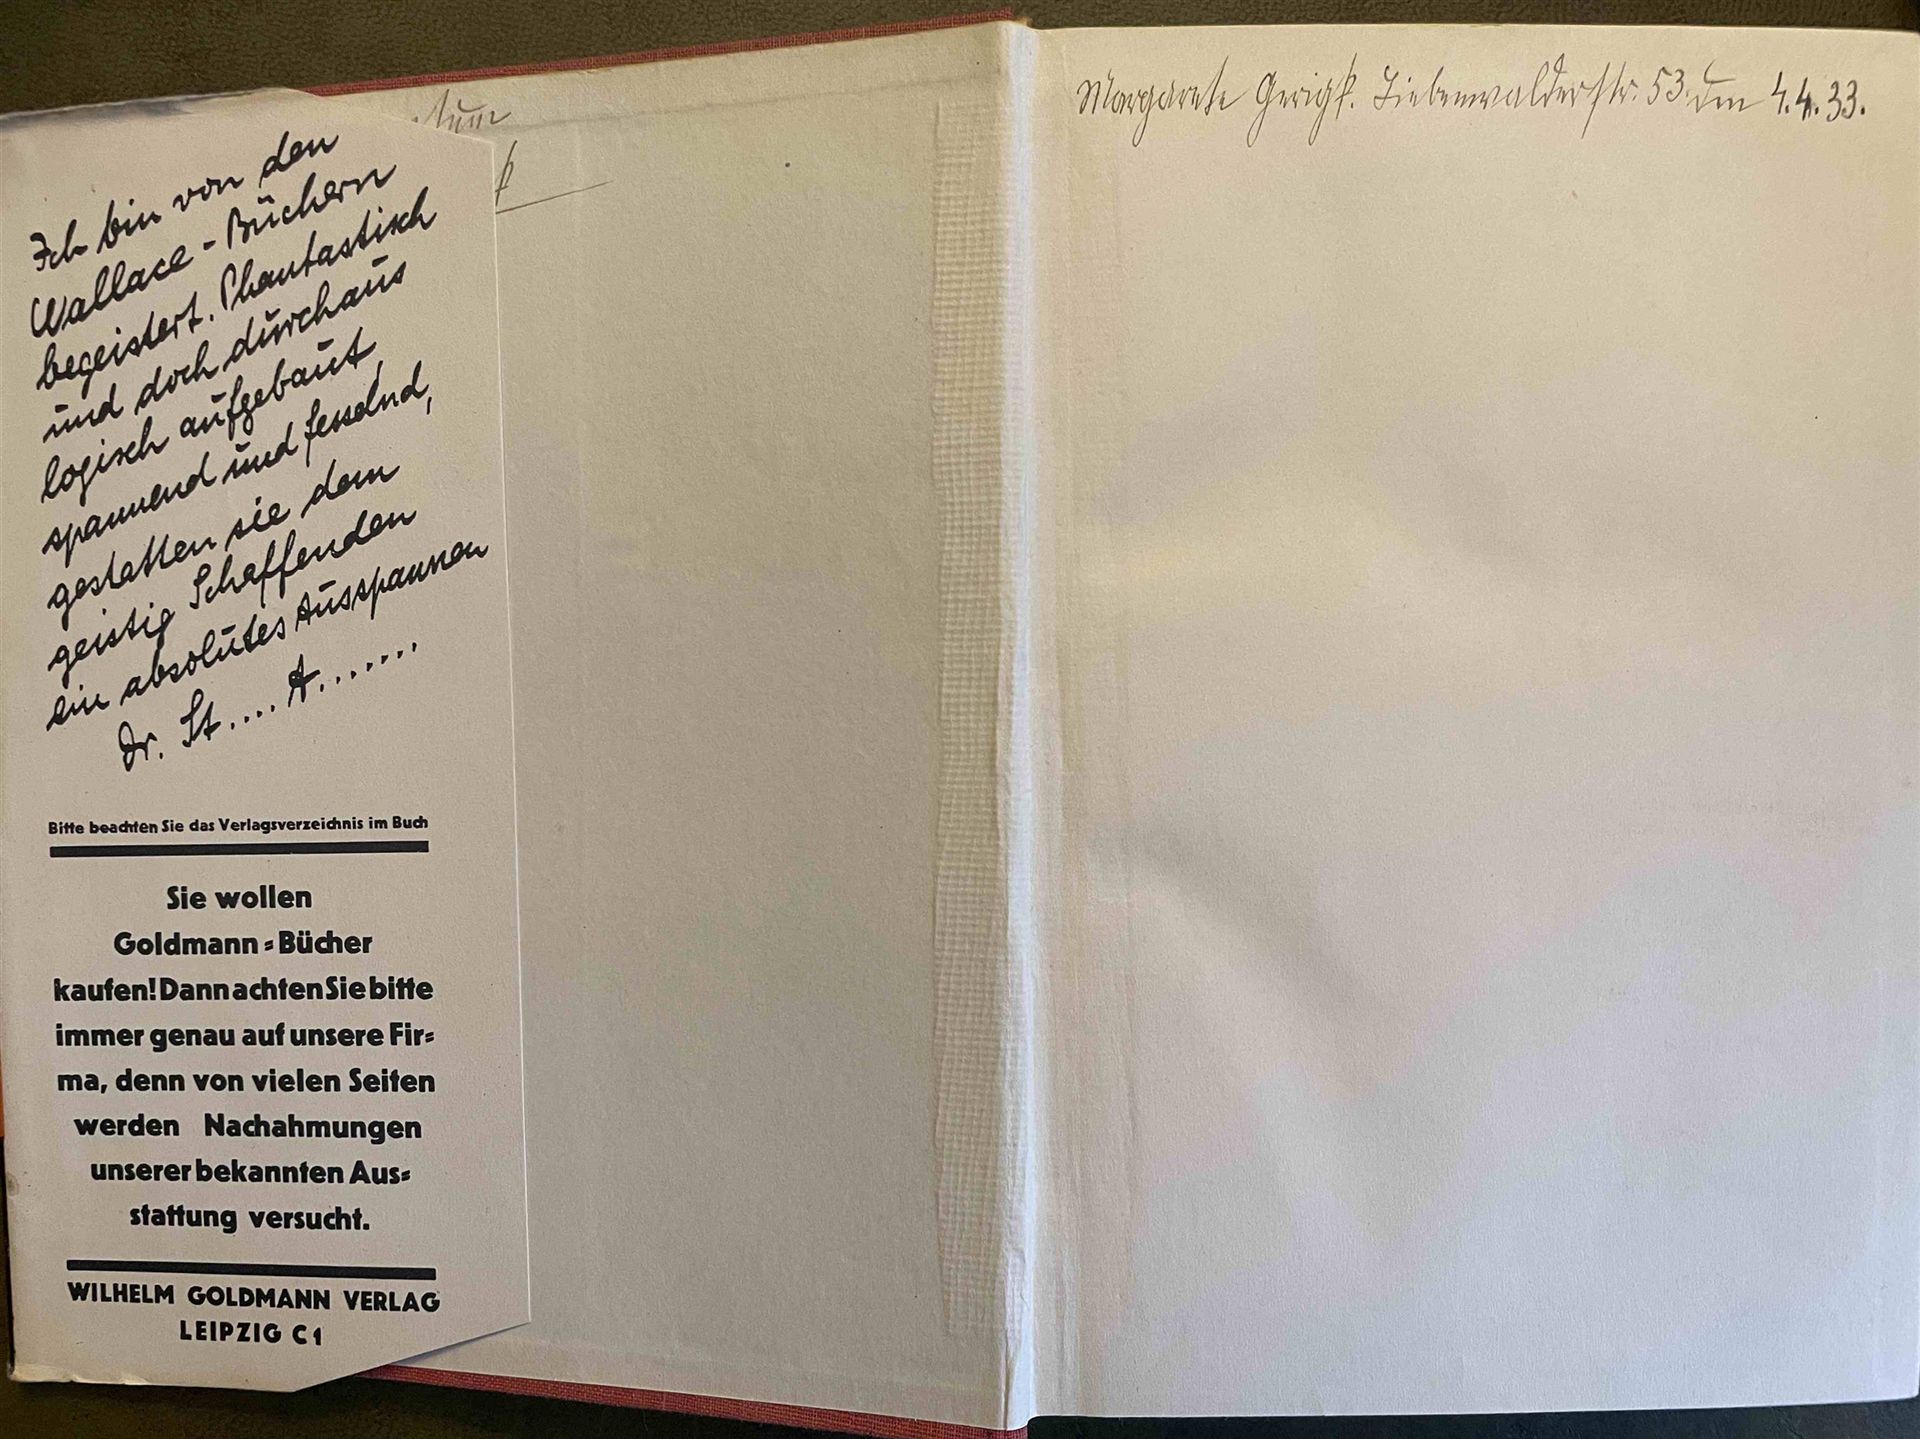 Ich bin von den
Wallace-Büchern
begeistert. Phantastisch
und doch durchaus
logisch aufgebaut,
spannend und fesselnd,
gestatten sie dem
geistig Schaffenden
ein absolutes Ausspannen
Dr. St.... A.......
Bitte beachten Sie das Verlagsverzeichnis im Buch
Sie wollen
Goldmann-Bücher
kaufen! Dann achten Sie bitte
immer genau auf unsere Fir-
ma, denn von vielen Seiten
werden Nachahmungen
unserer bekannten Aus-
stattung versucht.
WILHELM GOLDMANN VERLAG
LEIPZIG C 1
Margarete Gerigk. Liebenwalderstr. 53. den 4.4.33.